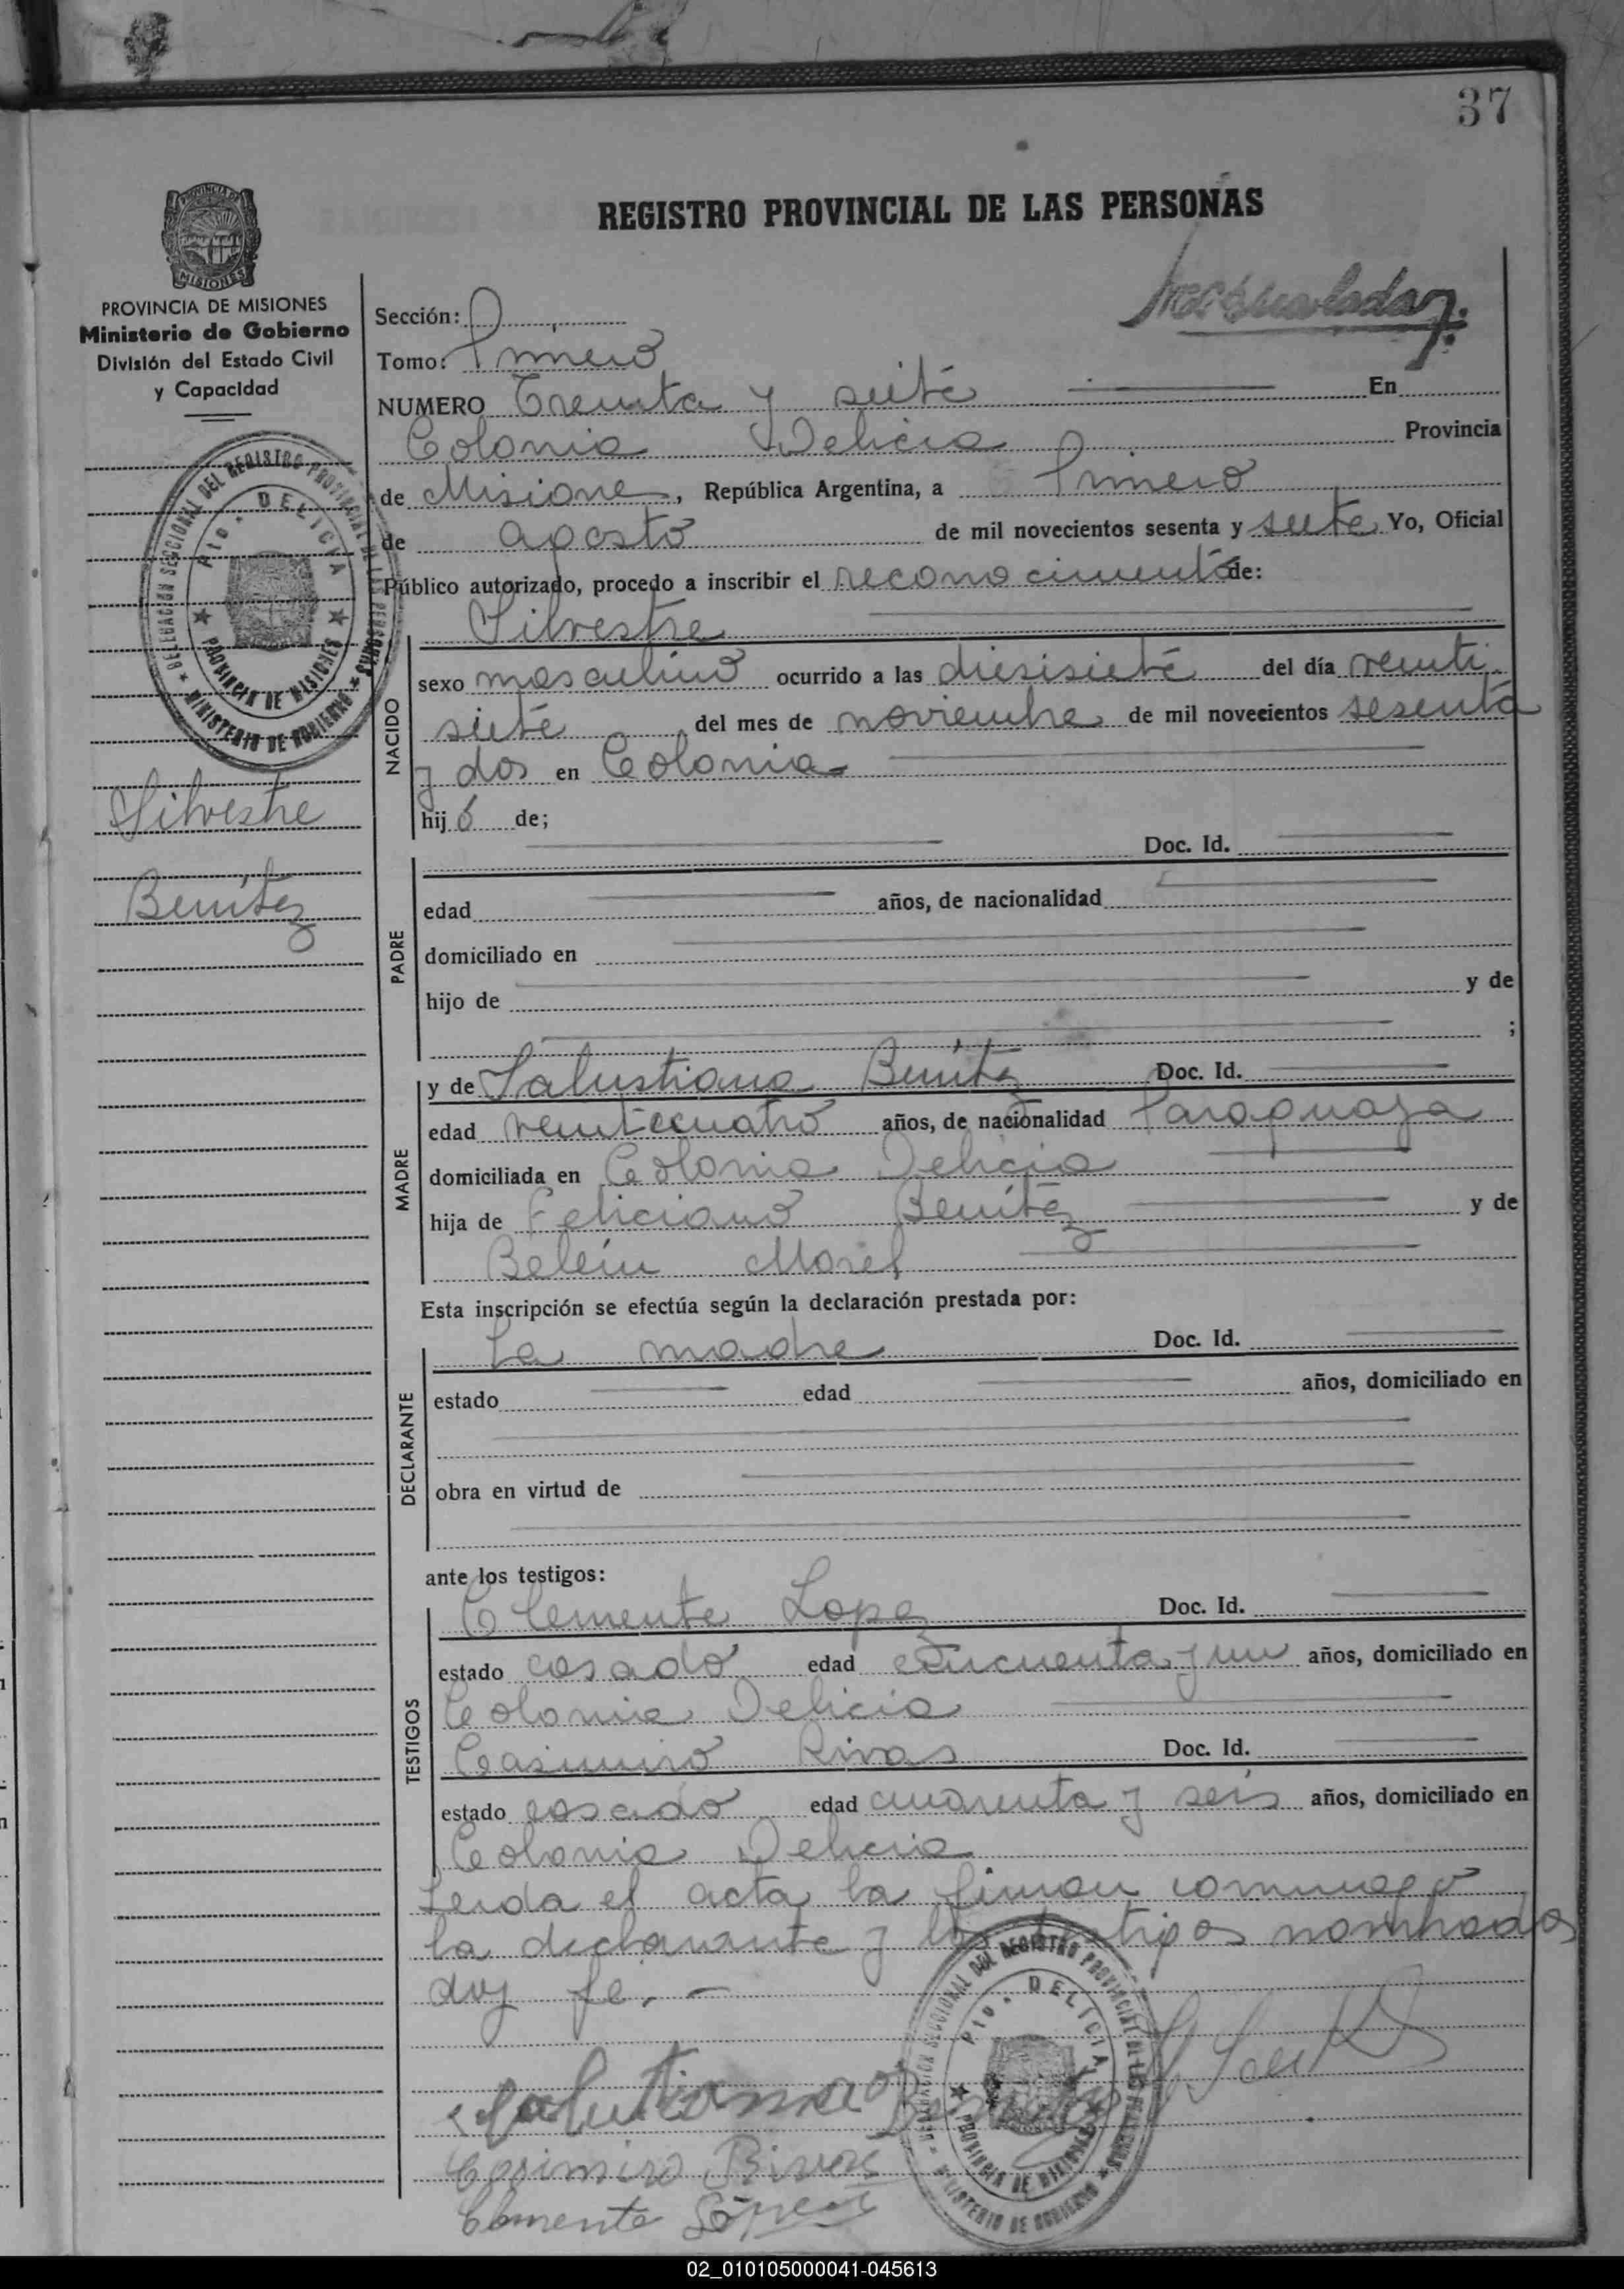 37
REGISTRO PROVINCIAL DE LAS PERSONAS
PROVINCIA DE MISIONES
MISIONES
PROVINCIA DE MISIONES
Ministerio de Gobierno
División del Estado Civil
y Capacidad
DELEGACION SECCIONAL DEL REGISTRO PROVINCIAL DE LAS PERSONAS
Pto. DELICIA
PROVINCIA DE MISIONES
MINISTERIO DE GOBIERNO
Silvestre
Benítez
Sección:
Tomo: Primero
NUMERO Treinta y siete En
Colonia Delicia Provincia
de Misiones, República Argentina, a Primero
de agosto de mil novecientos sesenta y siete Yo, Oficial
Público autorizado, procedo a inscribir el reconocimiento de:
Silvestre
NACIDO
sexo masculino ocurrido a las diesisiete del día veinti
siete del mes de noviembre de mil novecientos sesenta
y dos en Colonia
hijo de;
Doc. Id.
PADRE
edad años, de nacionalidad
domiciliado en
hijo de y de
;
MADRE
y de Salustiana Benítez Doc. Id.
edad veinticuatro años, de nacionalidad Paraguaya
domiciliada en Colonia Delicia
hija de Feliciano Benítez y de
Belén Morel
Esta inscripción se efectúa según la declaración prestada por:
DECLARANTE
La madre Doc. Id.
estado edad años, domiciliado en
obra en virtud de
ante los testigos:
TESTIGOS
Clemente Lopez Doc. Id.
estado casado edad cincuenta y un años, domiciliado en
Colonia Delicia
Casimiro Rivas Doc. Id.
estado casado edad cuarenta y seis años, domiciliado en
Colonia Delicia
Leida el acta la firman conmigo
la declarante y los testigos nombrados
doy fé.-
DELEGACION SECCIONAL DEL REGISTRO PROVINCIAL DE LAS PERSONAS
Pto. DELICIA
PROVINCIA DE MISIONES
MINISTERIO DE GOBIERNO
Casimiro Rivas
Clemente López
02_010105000041-045613